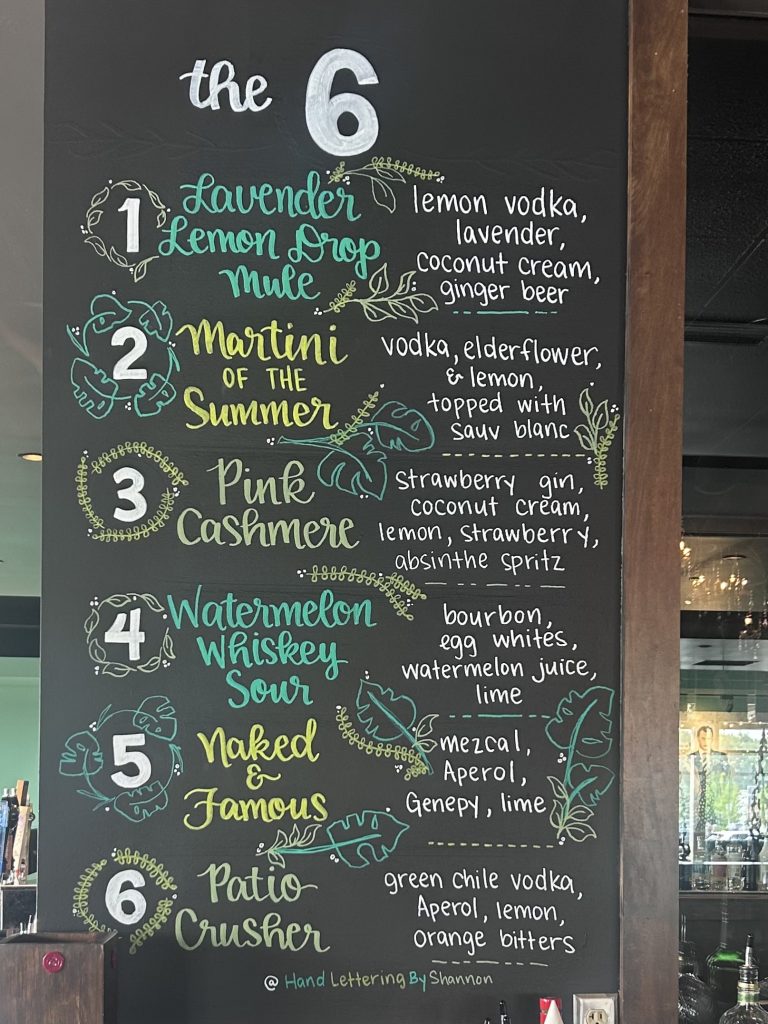 the 6
1
Lavender
Lemon Drop
Mule
lemon vodka,
lavender,
coconut cream,
ginger beer
2
Martini
OF THE
Summer
vodka, elderflower,
& lemon,
topped with
sauv blanc
3
Pink
Cashmere
Strawberry gin,
coconut cream,
lemon, strawberry,
absinthe spritz
4
Watermelon
Whiskey
Sour
bourbon,
egg whites,
watermelon juice,
lime
5
Naked
&
Famous
mezcal,
Aperol,
Genepy, lime
6
Patio
Crusher
green chile vodka,
Aperol, lemon,
orange bitters
@ Hand Lettering By Shannon